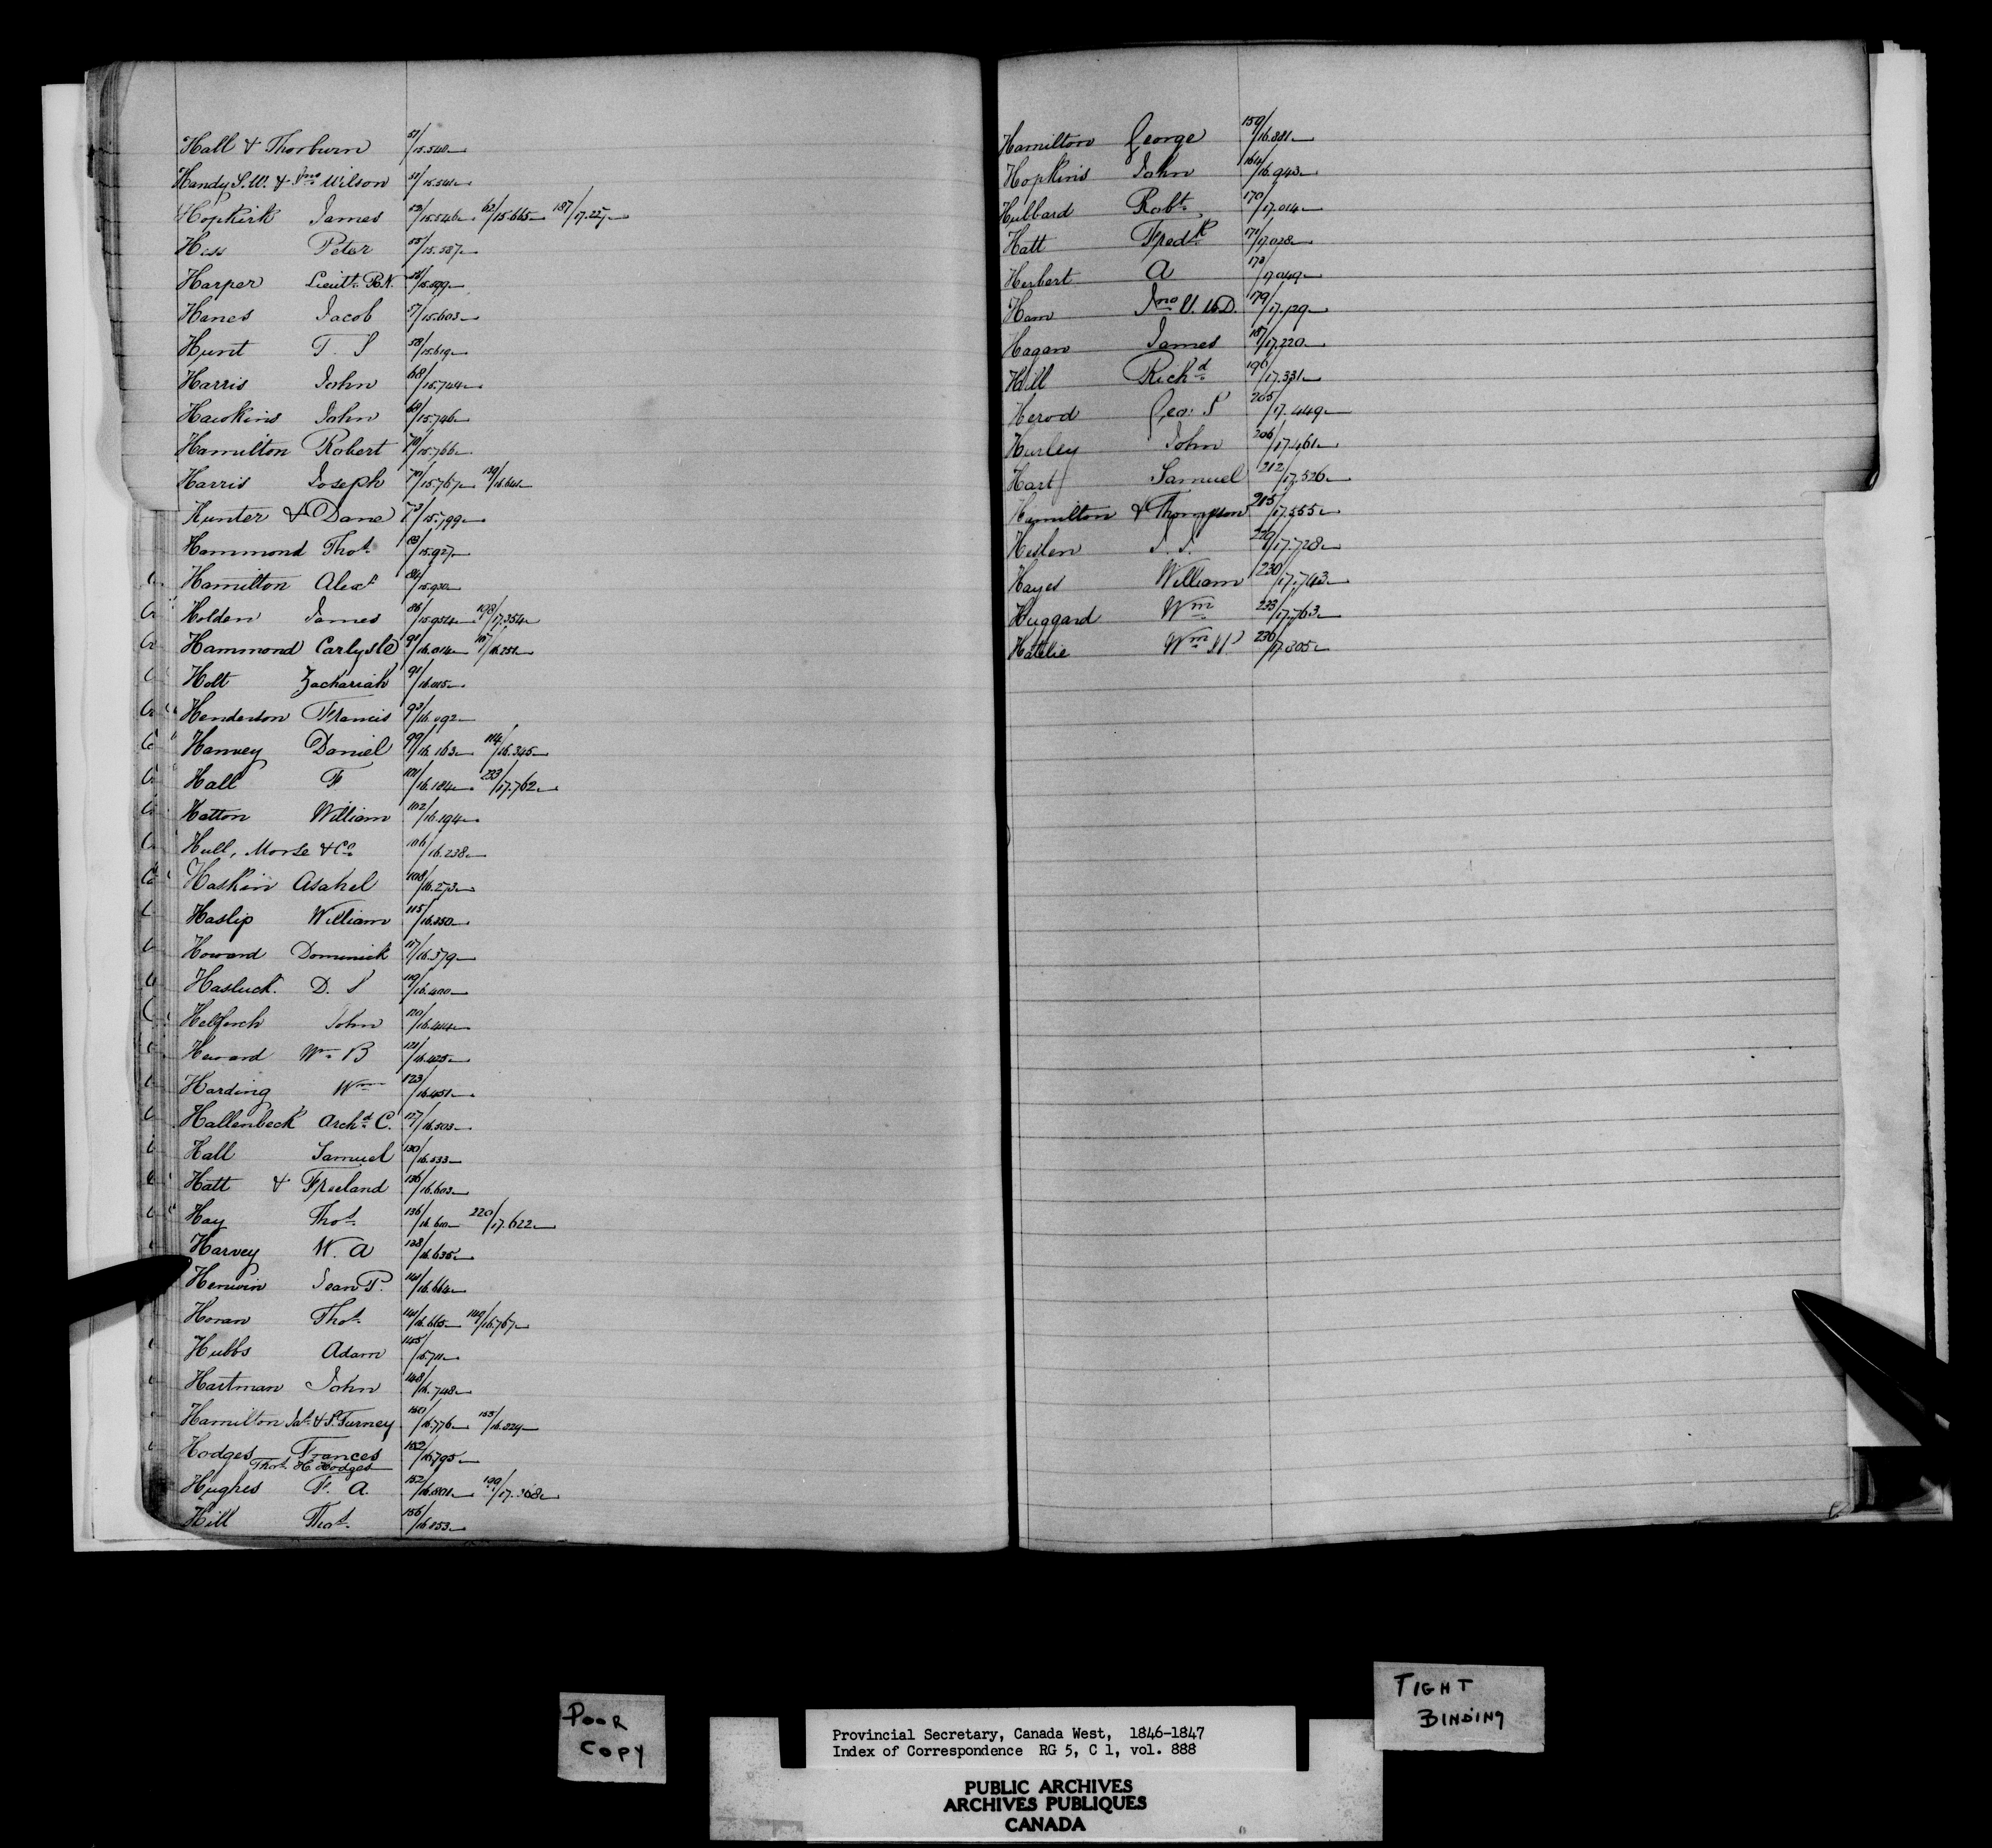 Hall & Thorburn 51/15.540
Handy S.W. & Jno Wilson 51/15.541
Hopkirk James 52/15.546 62/15.665 187/17.227
Hess Peter 55/15.587
Harper Lieut. R.N. 15.599
Hanes Jacob 57/15.603
Hunt T. S 58/15.619
Harris John 68/15.744
Hawkins John 68/15.746
Hamilton Robert 70/15.766
Harris Joseph 70/15.767 139/16.641
Hunter & Dane 73/15.799
Hammond Thos. 83/15.927
Hamilton Alexr 84/15.930
Holden James 86/15.954 198/17.354
Hammond Carlysle 91/16.014 107/16.251
Holt Zachariah 91/16.015
Henderson Francis 93/16.092
Hanvey Daniel 99/16.163 114/16.345
Hall F. 101/16.184 233/17.762
Hatton William 102/16.194
Hull, Morse & Co. 106/16.238
Haskin Asahel 108/16.273
Haslip William 115/16.350
Howard Dominick 117/16.379
Hasluck D. S 119/16.400
Helferch John 120/16.414
Heward Wm B 121/16.425
Harding Wm 123/16.451
Hallenbeck Archd. C. 127/16.503
Hall Samuel 130/16.533
Hatt & Freeland 136/16.603
Hay Thos. 136/16.610 220/17.622
Harvey W. A 138/16.635
Henwin Jean P. 141/16.664
Horan Thos. 141/16.665 149/16.767
Hubbs Adam 145/16.711
Hartman John 148/16.748
Hamilton Jas. & P. Turney 150/16.776 153/16.824
Hodges Frances 152/16.795
Thos. H. Hodges
Hughes F. A. 152/16.801 199/17.368
Hill Thos. 156/16.853
Hamilton George 159/16.881
Hopkins John 164/16.943
Hubbard Robt. 170/17.014
Hatt Fredk 171/17.028
Herbert A 173/17.049
Ham Jno V. M.D. 179/17.129
Hagan James 187/17.220
Hill Richd. 196/17.331
Herod Geo. S 205/17.449
Hurley John 206/17.461
Hart Samuel 212/17.526
Hamilton & Thompson 215/17.555
Heslen J. J. 229/17.728
Hayes William 230/17.743
Huggard Wm 233/17.763
Hatelie Wm H 236/17.805
POOR
COPY
TIGHT
BINDING
Provincial Secretary, Canada West, 1846-1847
Index of Correspondence RG 5, C 1, vol. 888
PUBLIC ARCHIVES
ARCHIVES PUBLIQUES
CANADA